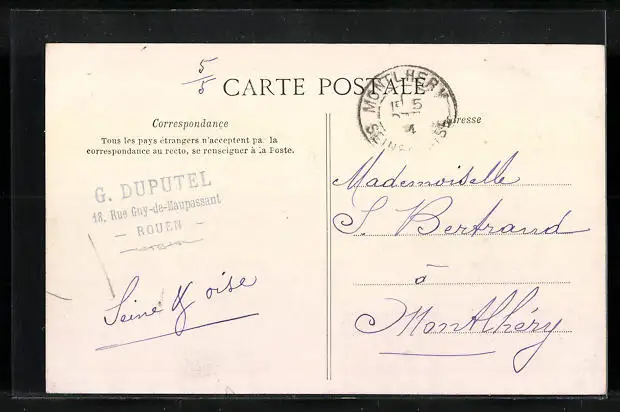 5/5
CARTE POSTALE
Correspondance
Tous les pays étrangers n'acceptent pas la
correspondance au recto, se renseigner à la Poste.
G. DUPUTEL
18, Rue Guy-de-Maupassant
- ROUEN -
Seine & oise
MONTLHERY
5
4
Adresse
Mademoiselle
S. Bertrand
à
Montlhéry